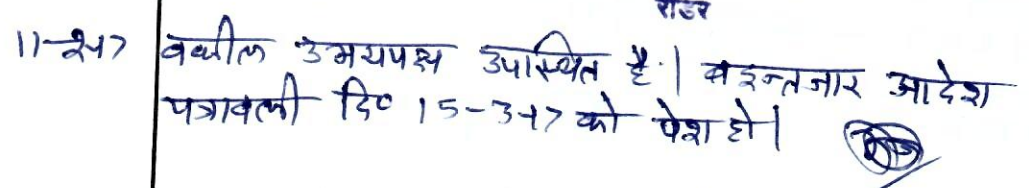 रीडर
11-2-17 वकील उभयपक्ष उपस्थित है। बइन्तजार आदेश
पत्रावली दि० 15-3-17 को पेश हो।